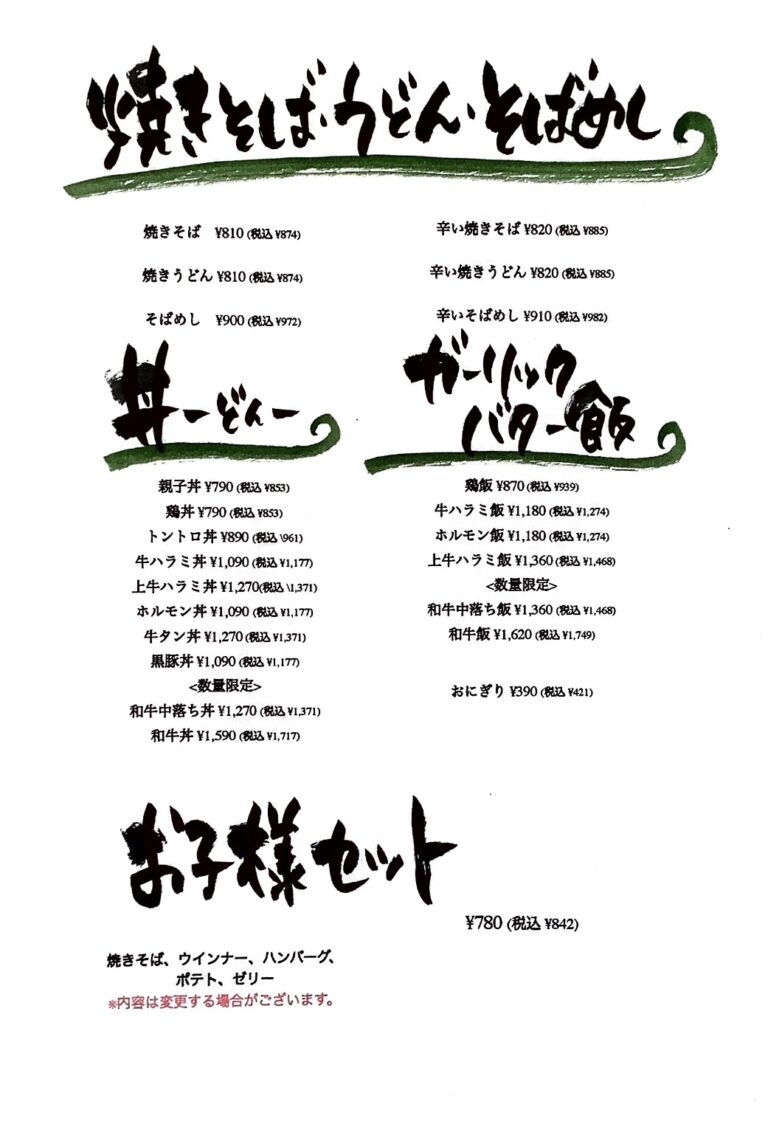 焼きそば・うどん・そばめし
焼きそば ¥810 (税込 ¥874)
焼きうどん ¥810 (税込 ¥874)
そばめし ¥900 (税込 ¥972)
辛い焼きそば ¥820 (税込 ¥885)
辛い焼きうどん ¥820 (税込 ¥885)
辛いそばめし ¥910 (税込 ¥982)
丼ーどんー
親子丼 ¥790 (税込 ¥853)
鶏丼 ¥790 (税込 ¥853)
トントロ丼 ¥890 (税込 \961)
牛ハラミ丼 ¥1,090 (税込 ¥1,177)
上牛ハラミ丼 ¥1,270(税込 \1,371)
ホルモン丼 ¥1,090 (税込 ¥1,177)
牛タン丼 ¥1,270 (税込 ¥1,371)
黒豚丼 ¥1,090 (税込 ¥1,177)
<数量限定>
和牛中落ち丼 ¥1,270 (税込 ¥1,371)
和牛丼 ¥1,590 (税込 ¥1,717)
ガーリック
バター飯
鶏飯 ¥870 (税込 ¥939)
牛ハラミ飯 ¥1,180 (税込 ¥1,274)
ホルモン飯 ¥1,180 (税込 ¥1,274)
上牛ハラミ飯 ¥1,360 (税込 ¥1,468)
<数量限定>
和牛中落ち飯 ¥1,360 (税込 ¥1,468)
和牛飯 ¥1,620 (税込 ¥1,749)
おにぎり ¥390 (税込 ¥421)
お子様セット
¥780 (税込 ¥842)
焼きそば、ウインナー、ハンバーグ、
ポテト、ゼリー
※内容は変更する場合がございます。